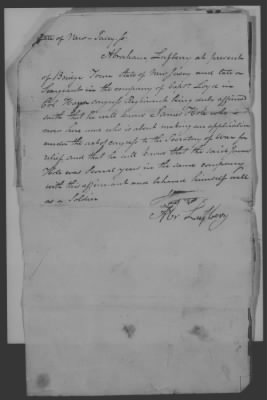 State of New-Jersey ss.
Abraham Lufbery at present
of Bridge Town State of New Jersey and late a
Sergeant in the company of Capt. Loyd in
Col. Hazen congress Regiment being duly affirmed
saith that he well knew James Hole who
now here and who is about making an application
under the act of congress to the Secretary of War for
relief and that he well knows that the said James
Hole was several years in the same company
with this affirmant and behaved himself well
as a Soldier
Abr Lufbery